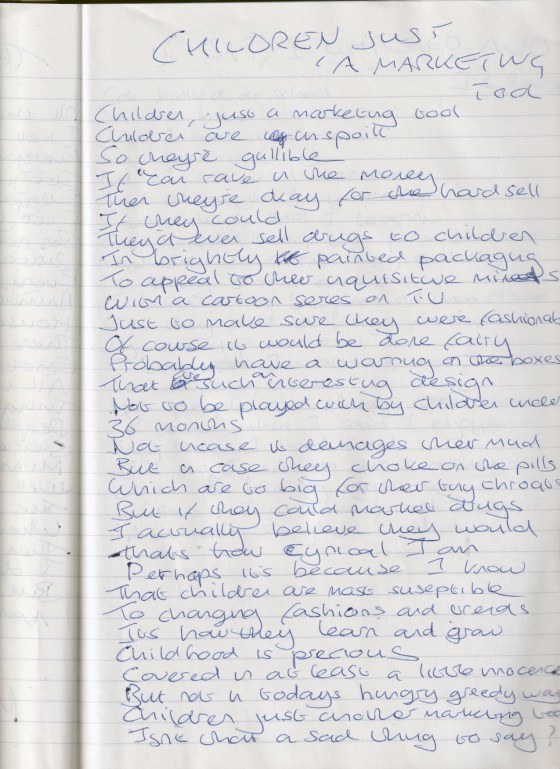 CHILDREN JUST
A MARKETING
TOOL
Children, just a marketing tool
Children are unspoilt
So they're gullible
If can rake in the money
Then they're okay for the hard sell
If they could
They'd ever sell drugs to children
In brightly painted packaging
To appeal to their inquisitive minds
With a cartoon series on T.V
Just to make sure they were fashionab
Of course it would be done fairy
Probably have a warning on the boxes
That are such an interesting design
Not to be played with by children under
36 months
Not incase it damages their mind
But in case they choke on the pills
Which are to big for their tiny throats
But if they could market drugs
I actually believe they would
thats how cynical I am
Perhaps it's because I know
That children are most suseptible
To changing fashions and trends
Its how they learn and grow
Childhood is precious
Covered in at least a little inocence
But not in todays hungry greedy wa
Children just another marketing too
Isnt that a sad thing to say?